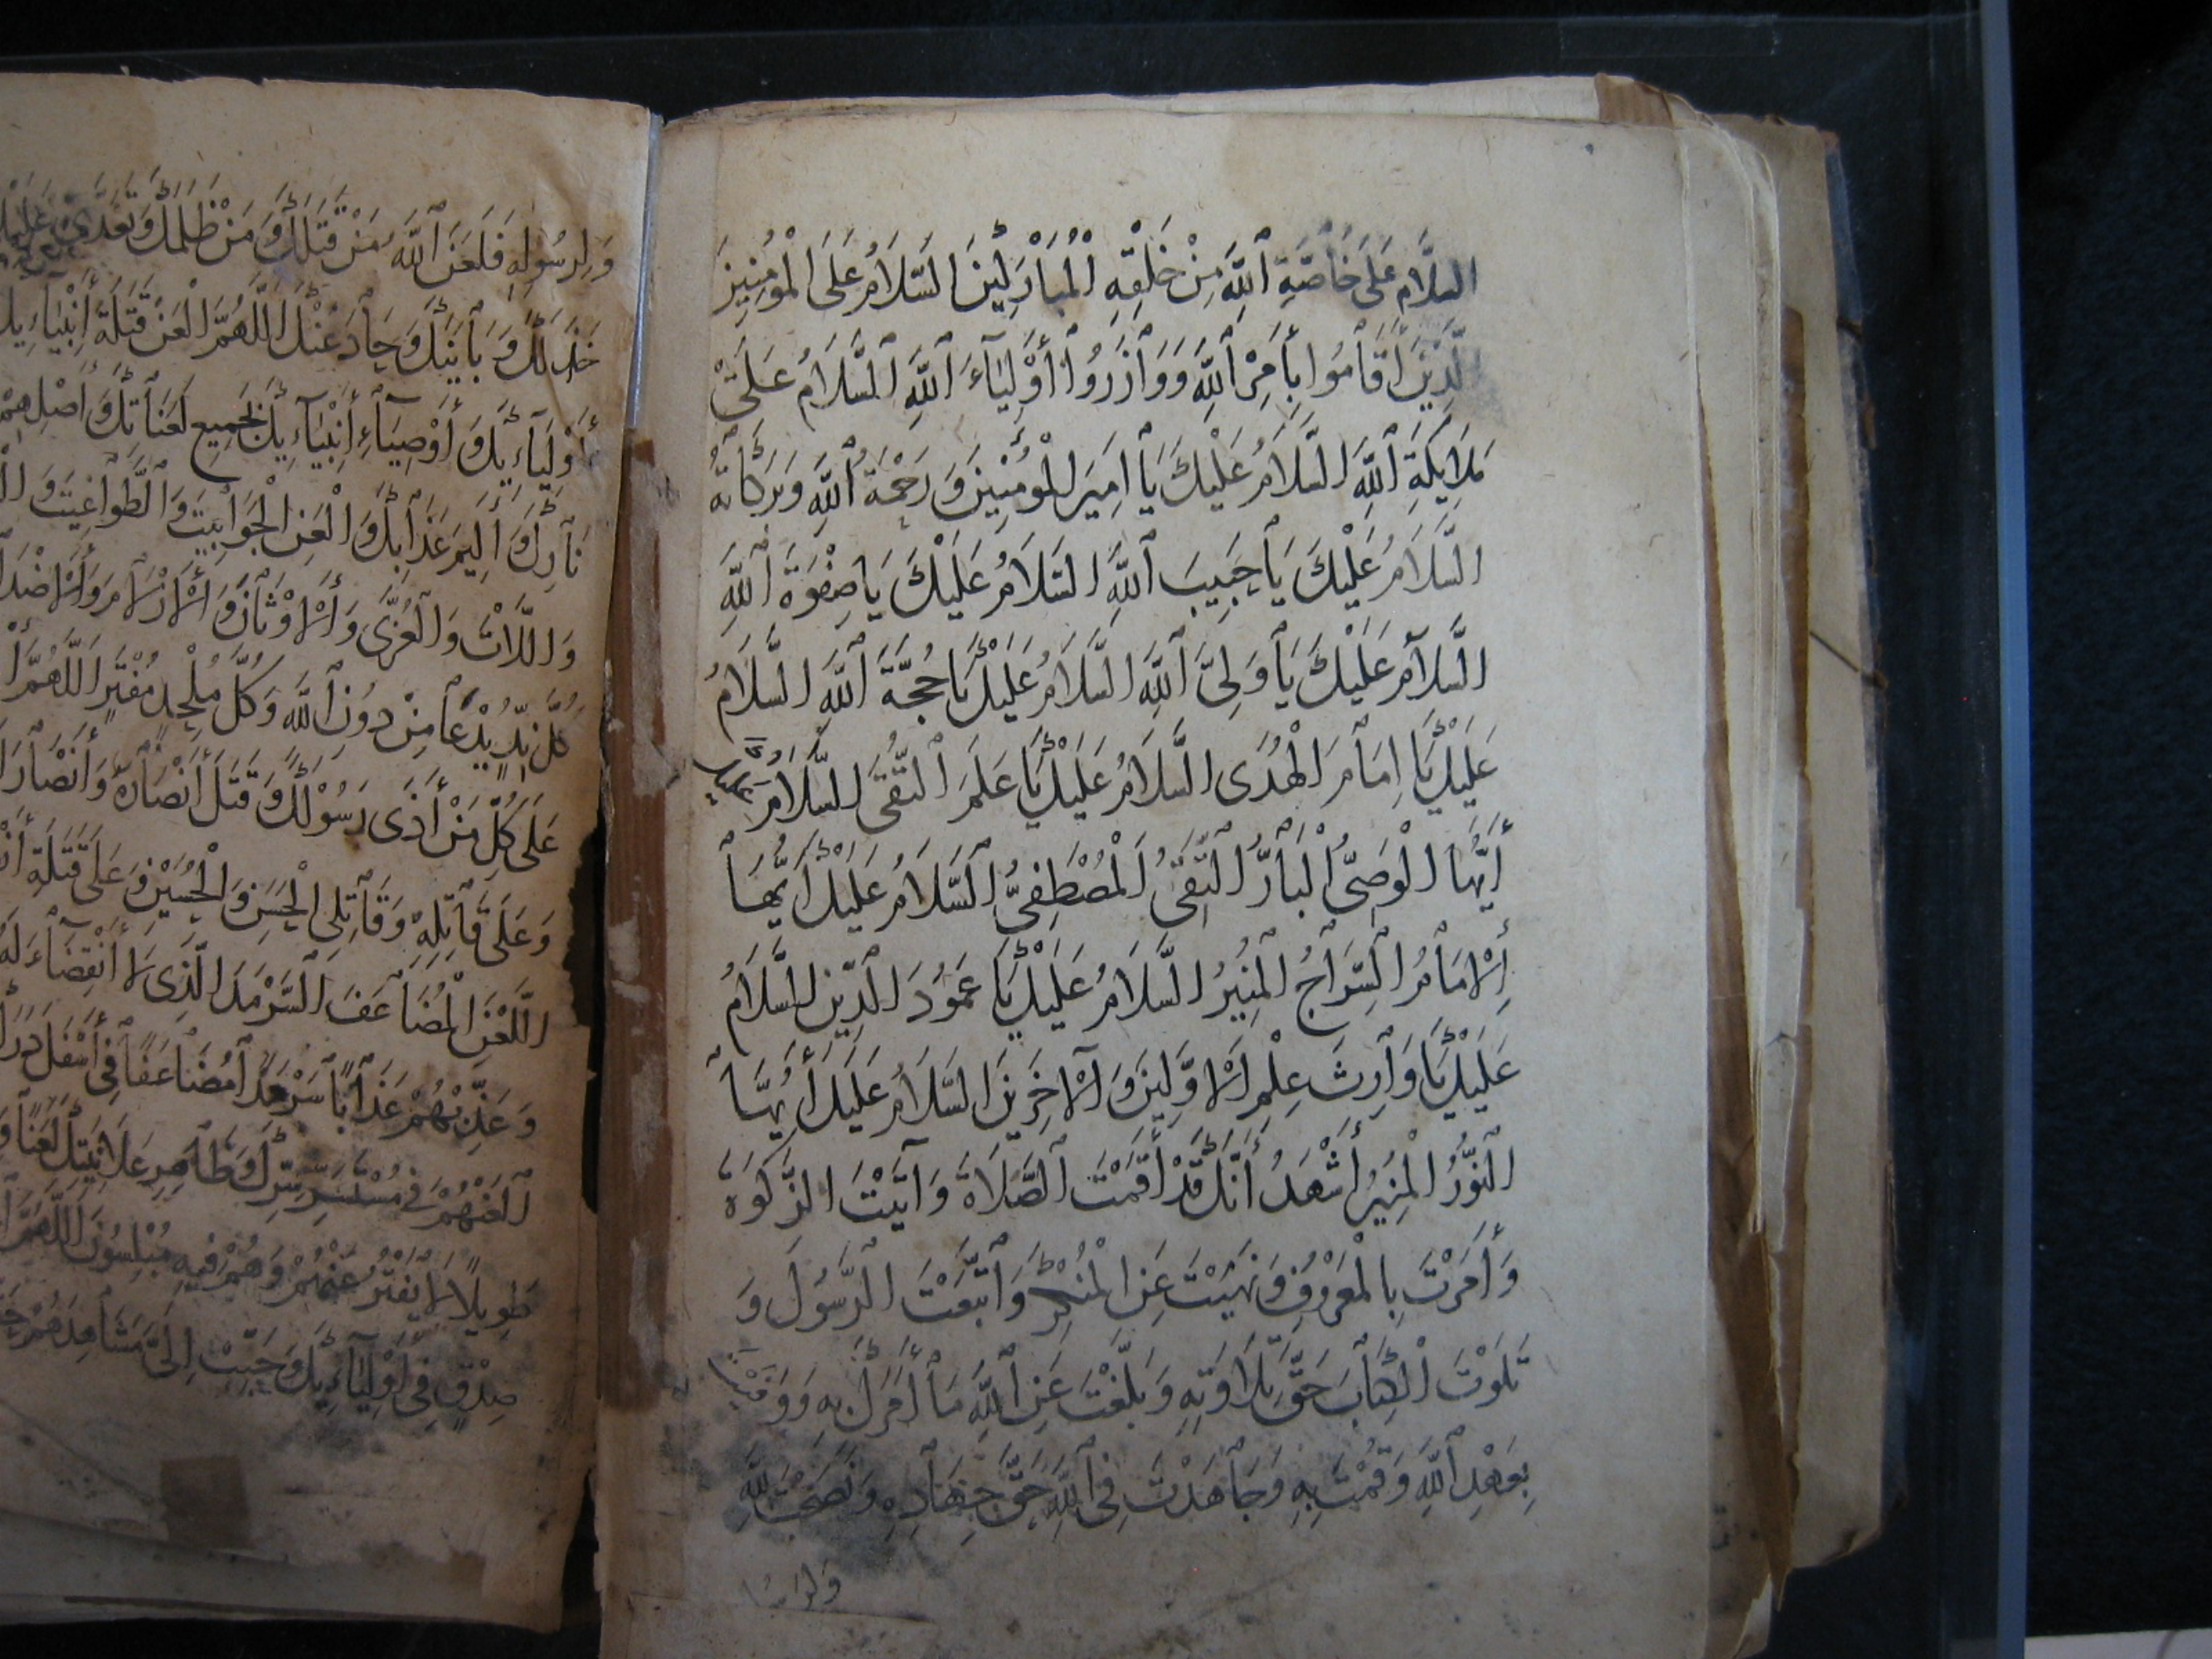 السلام على خاصة الله من خلقه المباركين السلام على المومنين
الذين اقاموا بأمر الله ووازروا أولياء الله السلام على
ملايكة الله السلام عليك يا امير المومنين ورحمة الله وبركاته
السلام عليك يا حبيب الله السلام عليك يا صفوة الله
السلام عليك يا ولي الله السلام عليك يا حجة الله السلام
عليك يا امام الهدى السلام عليك يا علم التقى السلام عليك
أيها الوصي البار التقي المصطفى السلام عليك أيها
الإمام السراج المنير السلام عليك يا عمود الدين السلام
عليك يا وارث علم الأولين والآخرين السلام عليك أيها
النور المنير أشهد أنك قد أقمت الصلاة وآتيت الزكوة
وأمرت بالمعروف ونهيت عن المنكر واتبعت الرسول و
تلوت الكتاب حق تلاوته وبلغت عن الله ما أمرك به ووفيت
بعهد الله وقمت به وجاهدت في الله حق جهاده ونصحت لله
ولرسو
ولرسوله فلعن الله من قتلك ومن ظلمك وتعدى عليك
خذلك وباينك وحاد عنك اللهم العن قتلة أنبياءك
أولياءك وأوصياء أنبياءك بجميع لعناتك وأصلهم
نارك وأليم عذابك والعن الجوابيت والطواغيت
واللات والعزى والأوثان والأزلام والأضداد
كل ند يدعا من دون الله وكل ملحد مفتر اللهم
على كل من أذى رسولك وقتل أنصاره وأنصار
وعلى قاتله وقاتلي الحسن والحسين وعلى قتلة
اللعن المضاعف السرمد الذي لا انقضاء له
وعذبهم عذابا سرمدا مضاعفا في أسفل درك
العنهم في مستسر سرك وظاهر علانيتك لعنا و
طويلا لا يفتر عنهم وهم فيه مبلسون اللهم
صدق في أولياءك وحبب الي مشاهدهم